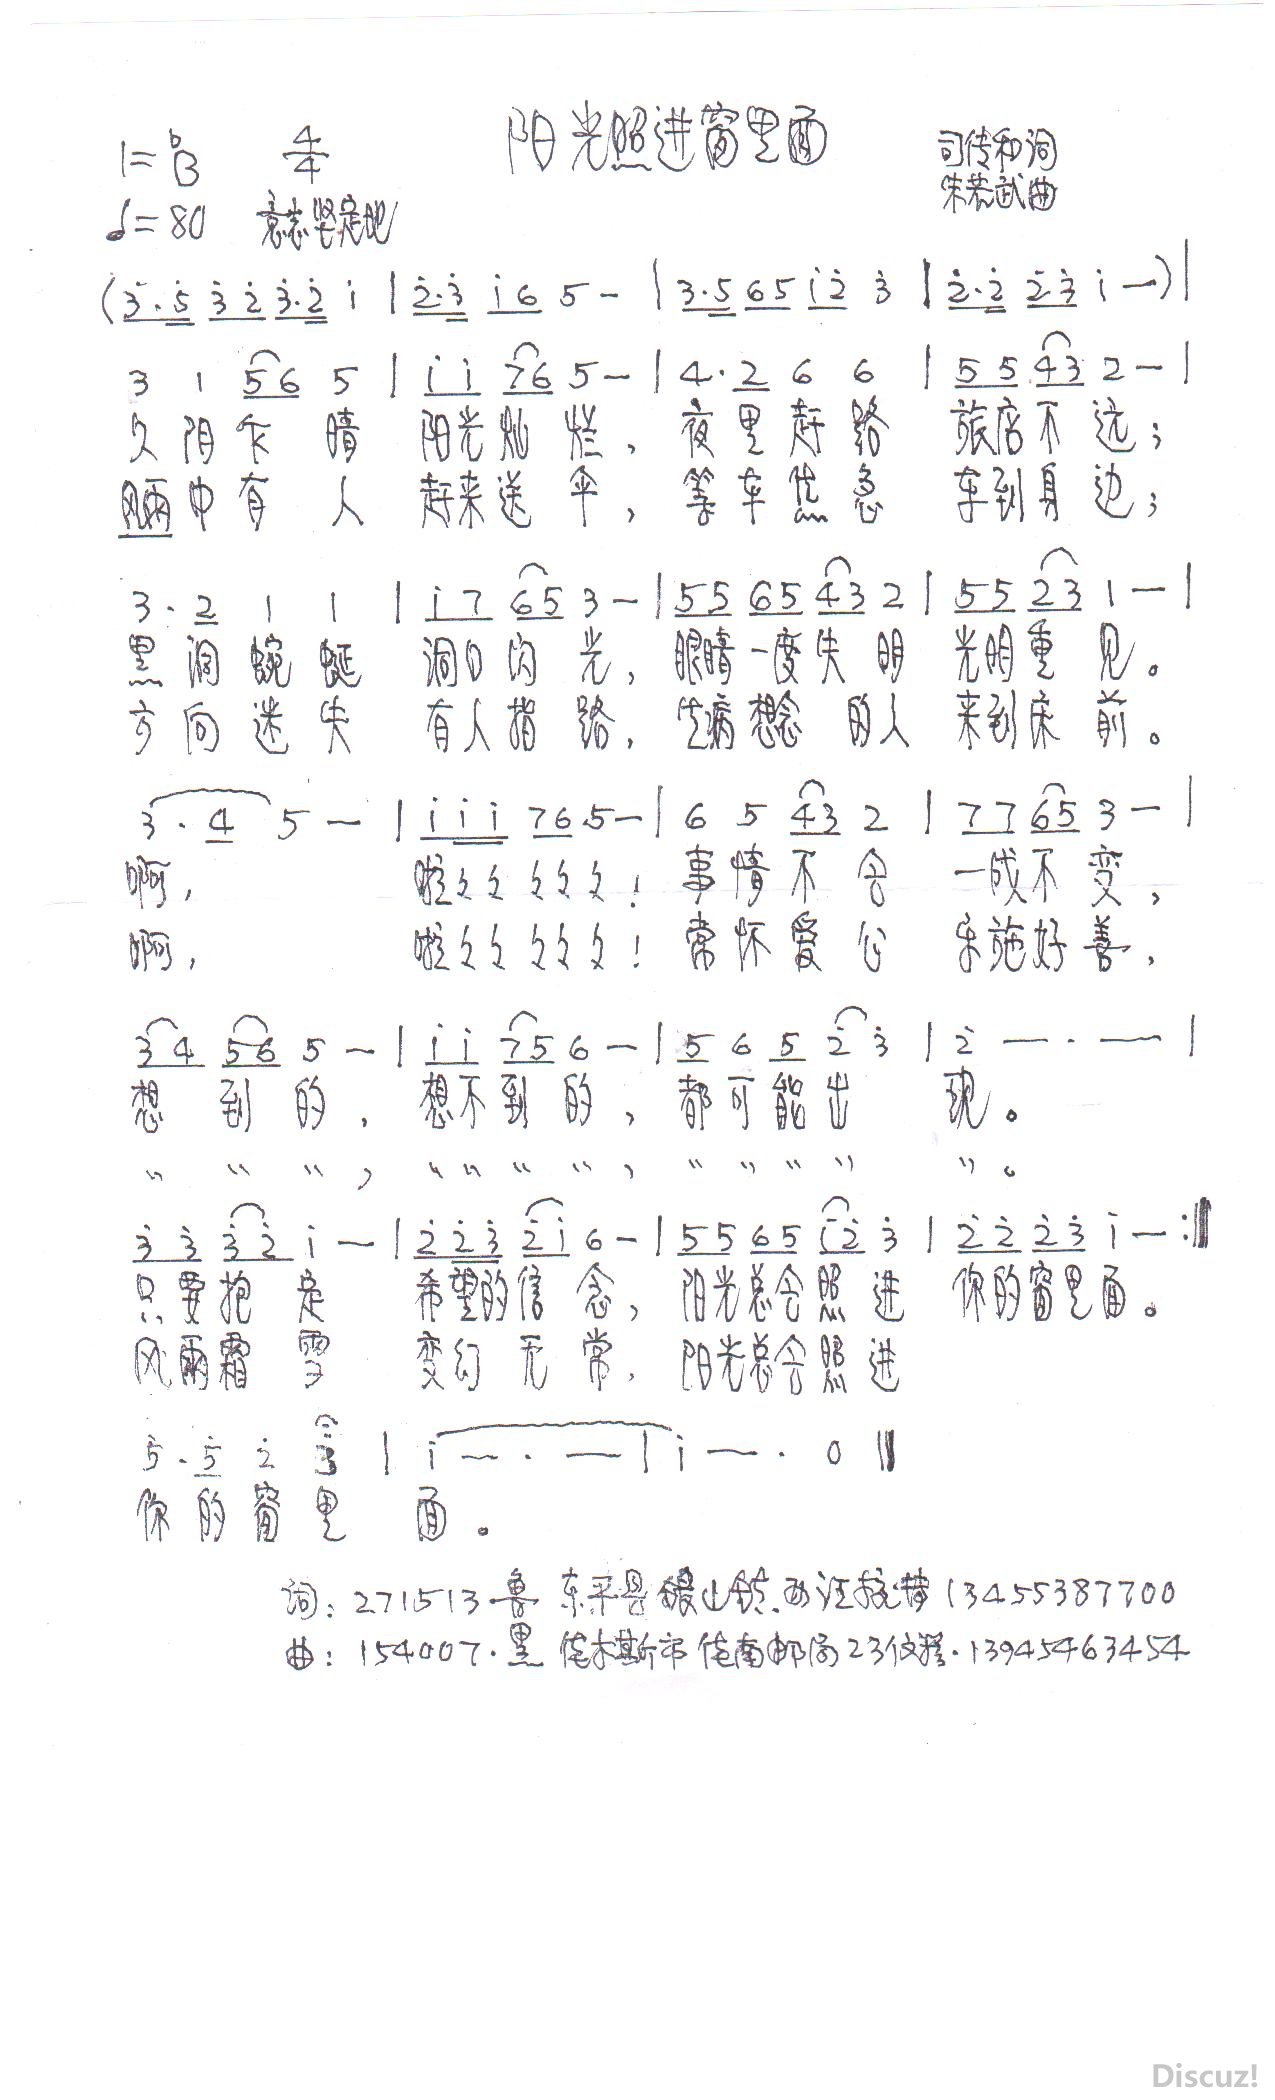 阳光照进窗里面
1=♭B 4/4
司传和词
朱若武曲
♩=80 意志坚定地
(3̇·5̇ 3̇2̇ 3̇·2̇ 1̇ | 2̇·3̇ 1̇6 5 — | 3·5 65 1̇2̇ 3̇ | 2̇·2̇ 2̇3̇ 1̇ —) |
3 1 56 5 | 1̇1̇ 76 5 — | 4·2 6 6 | 55 43 2 — |
久阴乍晴 阳光灿烂, 夜里赶路 旅店不远;
风雨中有人 赶来送伞, 等车焦急 车到身边;
3·2 1 1 | 1̇7 65 3 — | 55 65 43 2 | 55 23 1 — |
黑洞蜿蜒 洞口闪光, 眼睛一度失明 光明重见。
方向迷失 有人指路, 生病想念的人 来到床前。
3·4 5 — | 1̇1̇1̇ 76 5 — | 6 5 43 2 | 77 65 3 — |
啊, 啦〻〻〻〻〻! 事情不会 一成不变,
啊, 啦〻〻〻〻〻! 常怀爱心 乐施好善,
34 56 5 — | 1̇1̇ 75 6 — | 5 6 5 2̇ 3̇ | 2̇ — · — |
想到的, 想不到的, 都可能出 现。
〃 〃 〃, 〃 〃 〃 〃, 〃 〃 〃 〃 〃。
3̇ 3̇ 3̇2̇ 1̇ — | 2̇2̇3̇ 2̇1̇ 6 — | 55 65 1̇2̇ 3̇ | 2̇2̇ 2̇3̇ 1̇ — :‖
只要抱定 希望的信念, 阳光总会照进 你的窗里面。
风雨霜雪 变幻无常, 阳光总会照进
5̇·5̇ 2̇ 3̇ | 1̇ — · — | 1̇ — · 0 ‖
你的窗里 面。
词: 271513 鲁 东平县 山镇 西汪 13455387700
曲: 154007·黑 佳木斯市佳南邮局23 ·13945463454
Discuz!